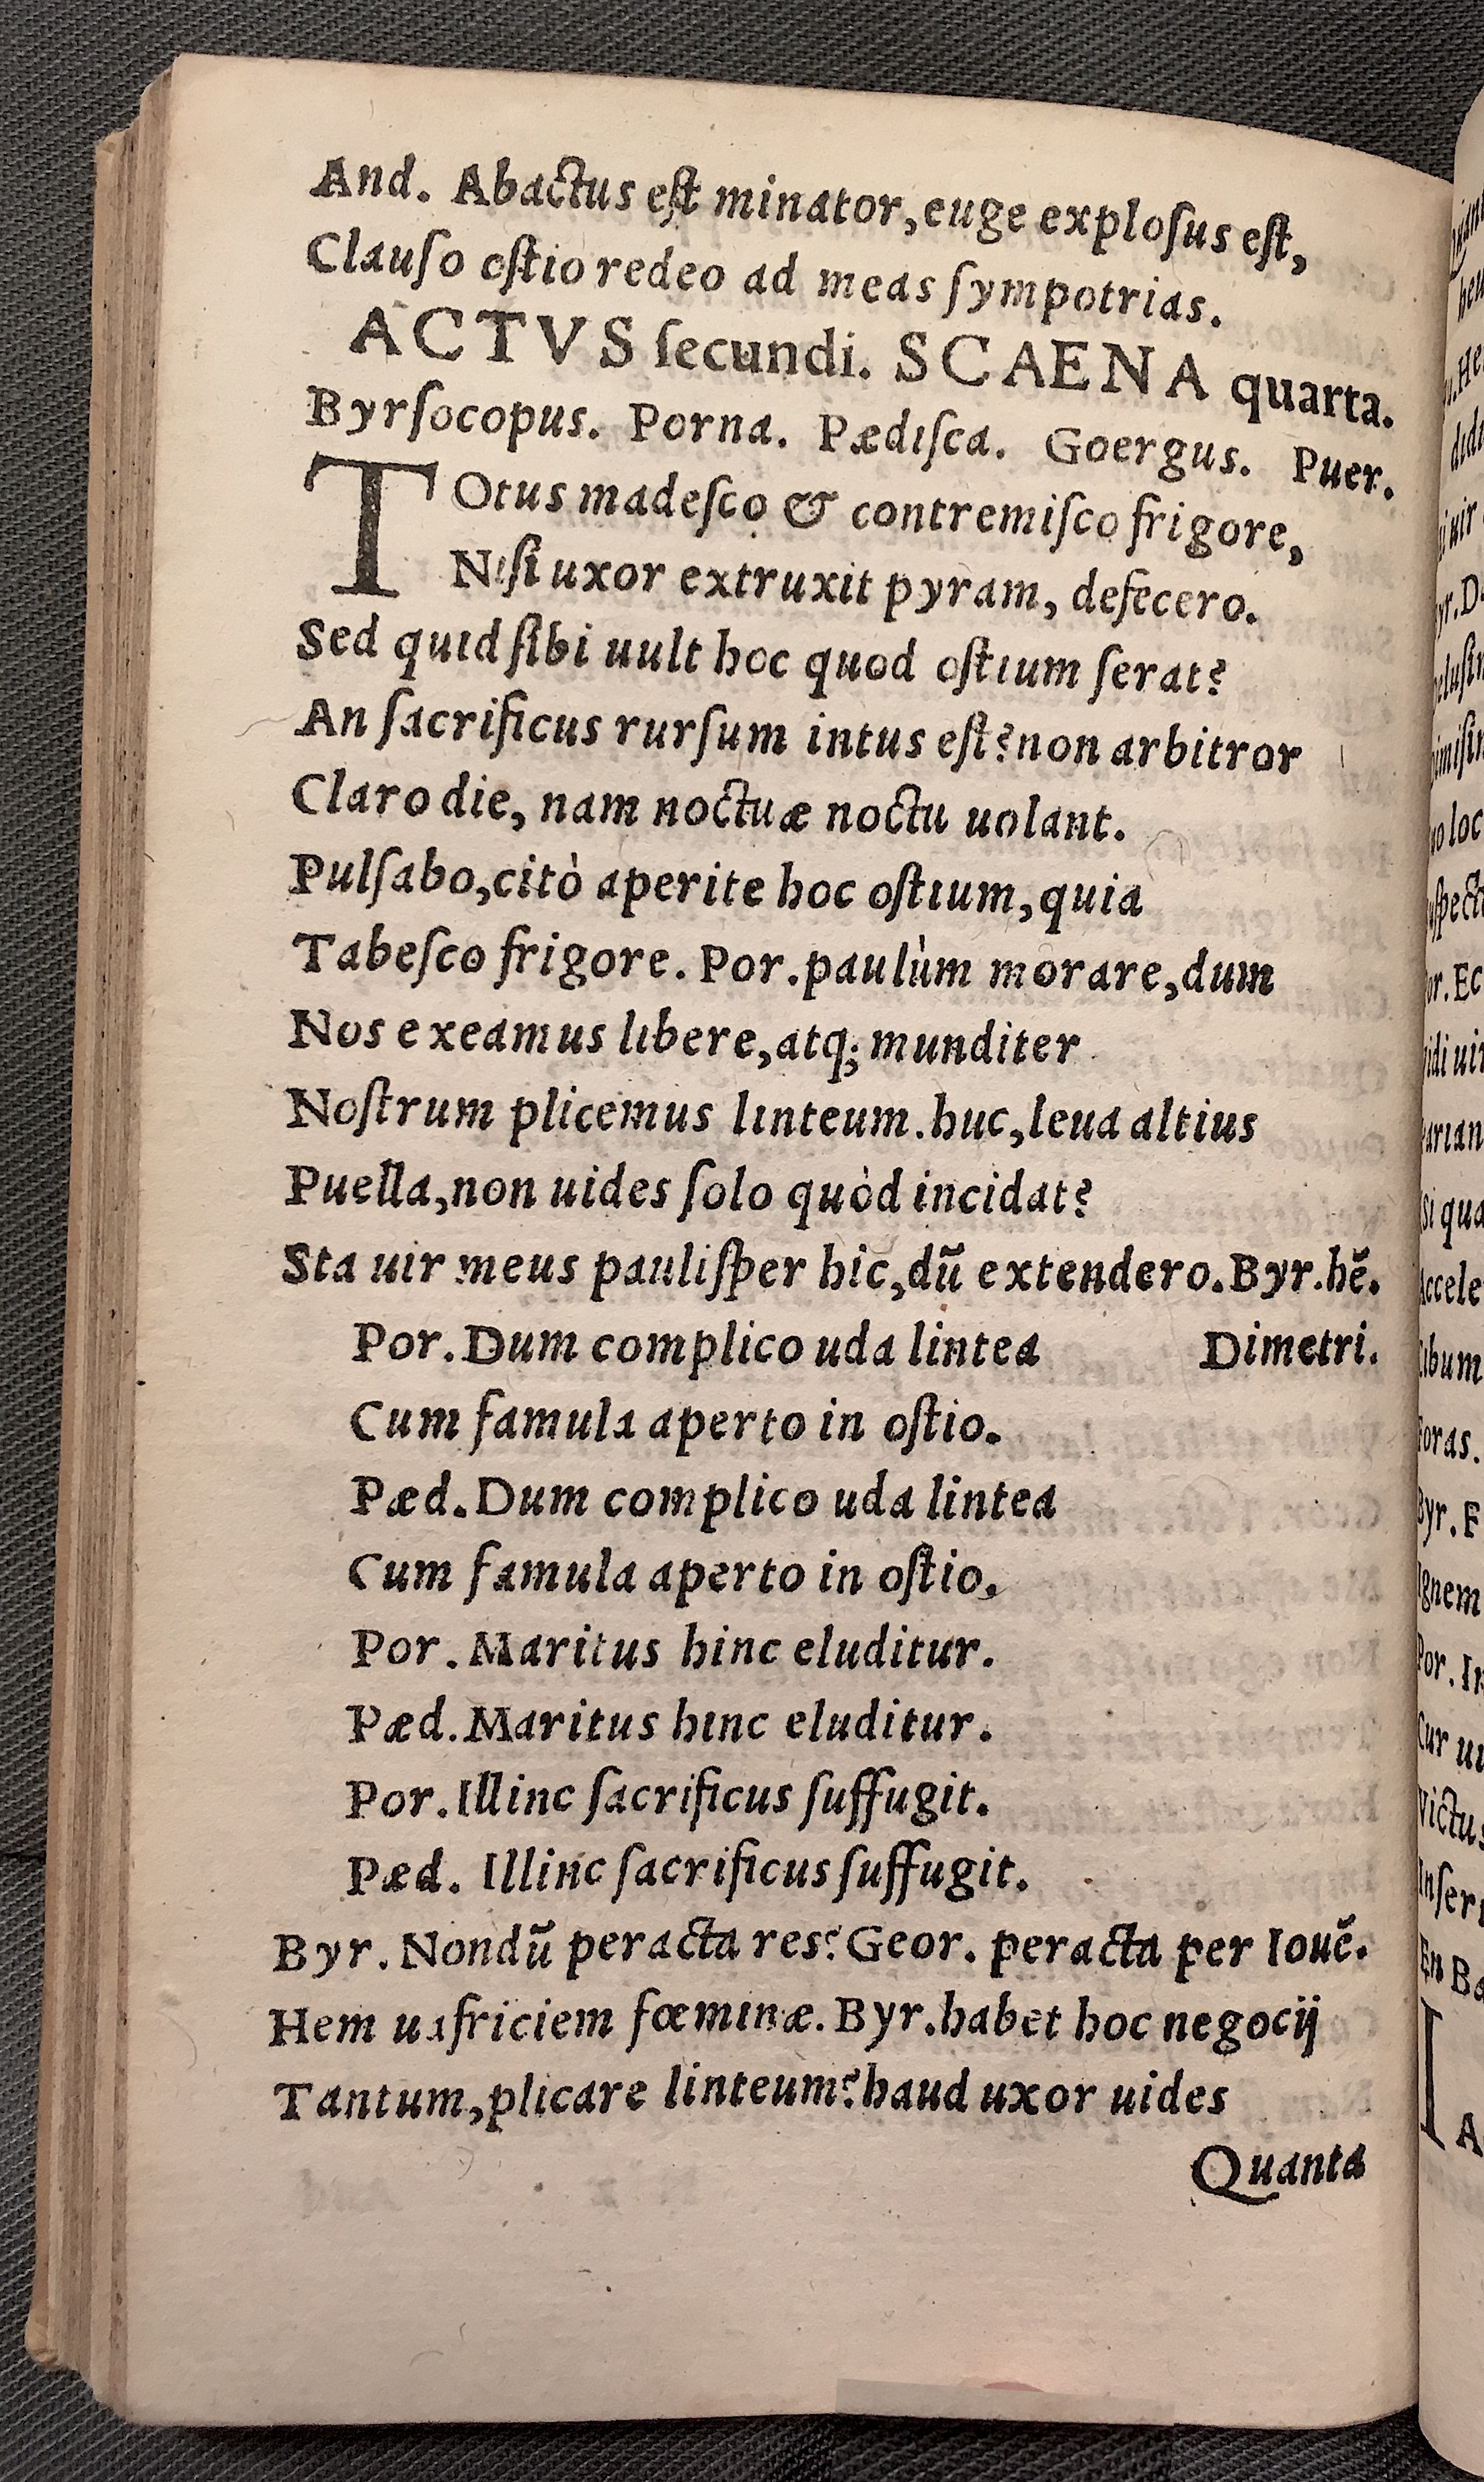 And. Abactus eſt minator, euge exploſus eſt,
Clauſo oſtio redeo ad meas ſympotrias.
ACTVS ſecundi. SCAENA quarta.
Byrſocopus. Porna. Pædiſca. Goergus. Puer.
TOtus madeſco & contremiſco frigore,
Niſi uxor extruxit pyram, defecero.
Sed quid ſibi uult hoc quod oſtium ſerat?
An ſacrificus rurſum intus eſt? non arbitror
Claro die, nam noctuæ noctu uolant.
Pulſabo, citò aperite hoc oſtium, quia
Tabeſco frigore. Por. paulùm morare, dum
Nos exeamus libere, atq; munditer
Noſtrum plicemus linteum. huc, leua altius
Puella, non uides ſolo quòd incidat?
Sta uir meus pauliſper hic, dū extendero. Byr. hē.
Por. Dum complico uda lintea Dimetri.
Cum famula aperto in oſtio.
Pæd. Dum complico uda lintea
Cum famula aperto in oſtio.
Por. Maritus hinc eluditur.
Pæd. Maritus hinc eluditur.
Por. Illinc ſacrificus ſuffugit.
Pæd. Illinc ſacrificus ſuffugit.
Byr. Nondū peracta res? Geor. peracta per Iouē.
Hem uafriciem fœminæ. Byr. habet hoc negocij
Tantum, plicare linteum? haud uxor uides
Quanta